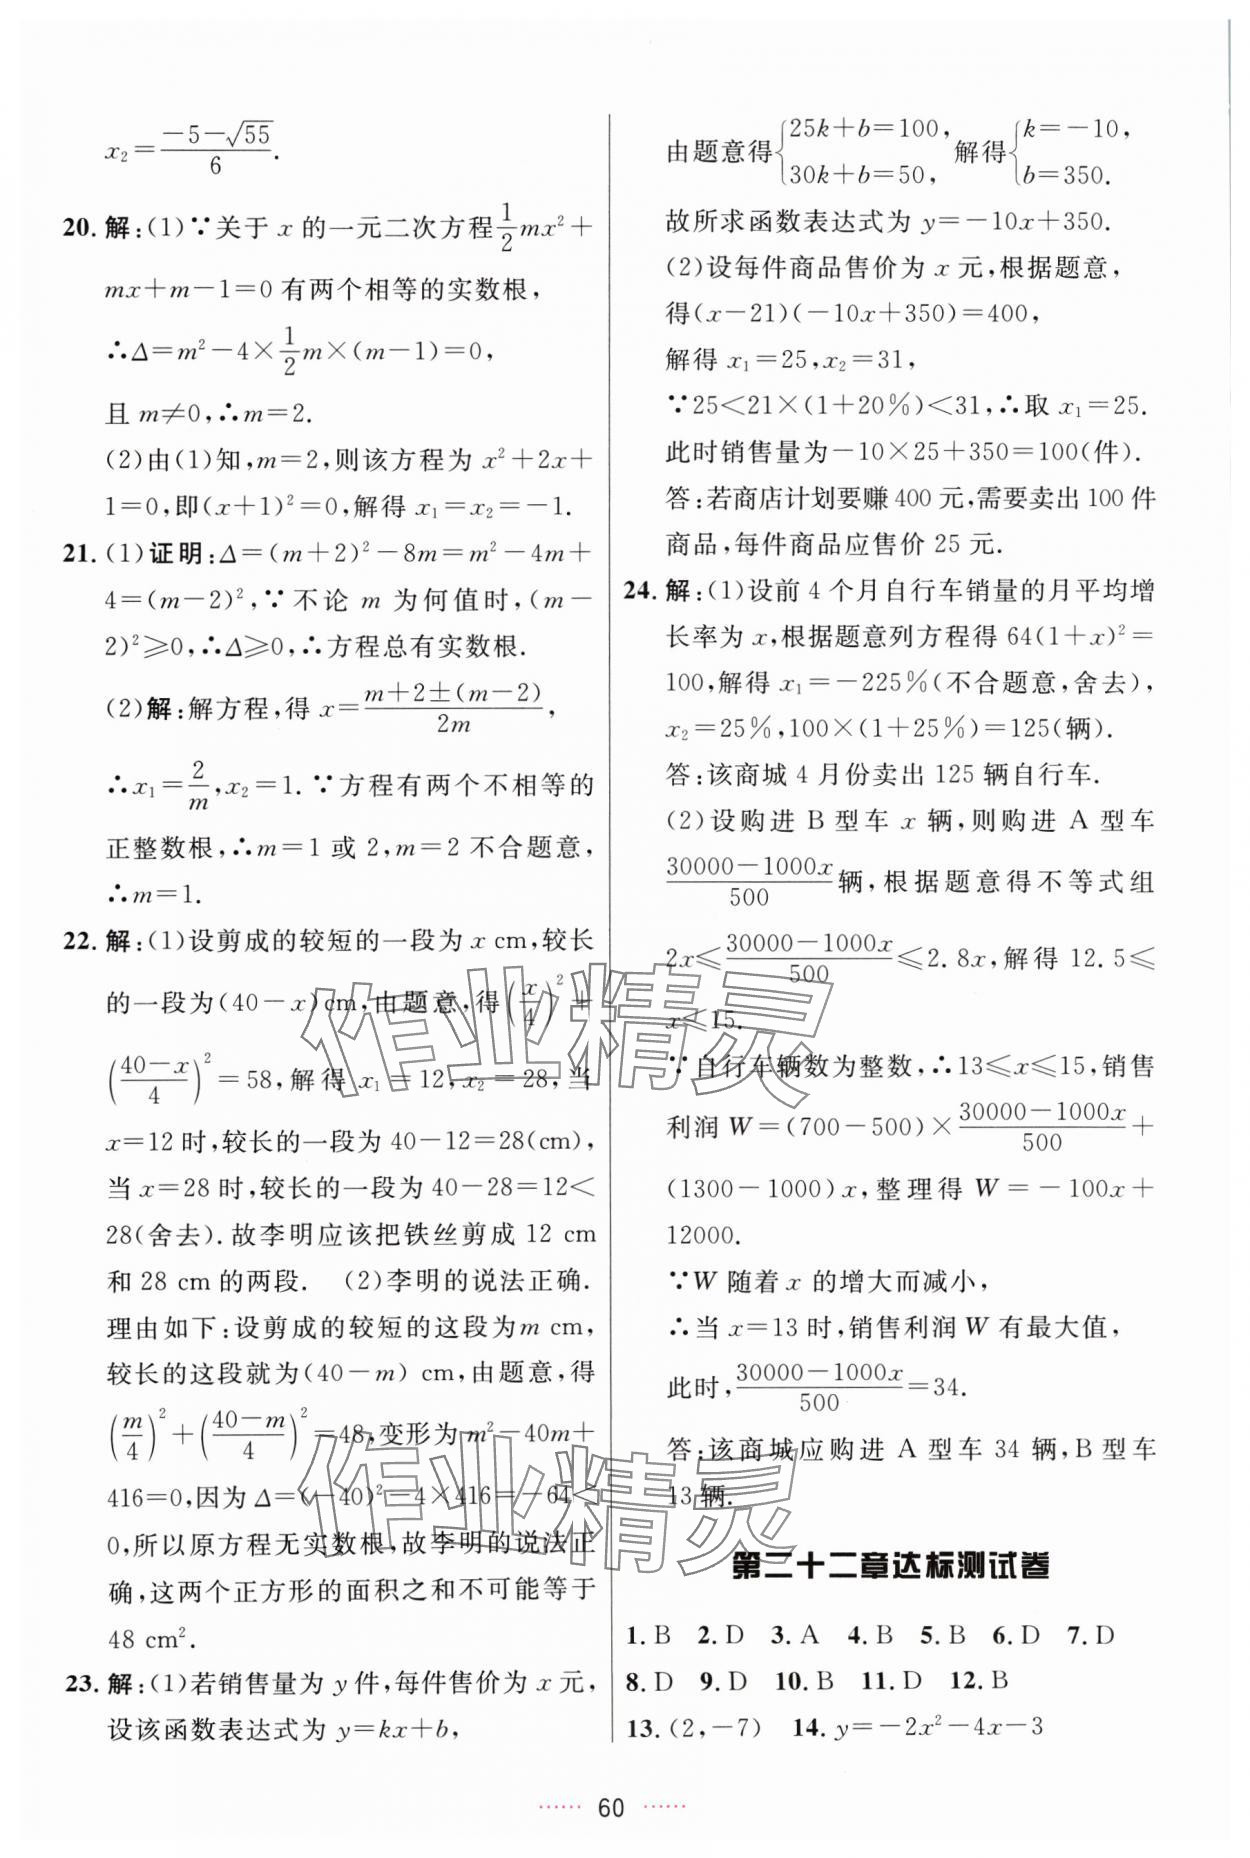 x₂=(-5-√55)/6.
20. 解:(1)∵关于 x 的一元二次方程 1/2 mx²+
mx+m-1=0 有两个相等的实数根,
∴Δ=m²-4×1/2 m×(m-1)=0,
且 m≠0,∴m=2.
(2)由(1)知,m=2,则该方程为 x²+2x+
1=0,即(x+1)²=0,解得 x₁=x₂=-1.
21. (1)证明:Δ=(m+2)²-8m=m²-4m+
4=(m-2)²,∵不论 m 为何值时,(m-
2)²≥0,∴Δ≥0,∴方程总有实数根.
(2)解:解方程,得 x=(m+2±(m-2))/2m,
∴x₁=2/m,x₂=1.∵方程有两个不相等的
正整数根,∴m=1 或 2,m=2 不合题意,
∴m=1.
22. 解:(1)设剪成的较短的一段为 x cm,较长
的一段为(40-x)cm,由题意,得(x/4)²+
((40-x)/4)²=58,解得 x₁=12,x₂=28,当
x=12 时,较长的一段为 40-12=28(cm),
当 x=28 时,较长的一段为 40-28=12<
28(舍去).故李明应该把铁丝剪成 12 cm
和 28 cm 的两段. (2)李明的说法正确.
理由如下:设剪成的较短的这段为m cm,
较长的这段就为(40-m) cm,由题意,得
(m/4)²+((40-m)/4)²=48,变形为 m²-40m+
416=0,因为 Δ=(-40)²-4×416=-64<
0,所以原方程无实数根,故李明的说法正
确,这两个正方形的面积之和不可能等于
48 cm².
23. 解:(1)若销售量为 y 件,每件售价为 x 元,
设该函数表达式为 y=kx+b,
由题意得{25k+b=100, 30k+b=50, 解得{k=-10, b=350.
故所求函数表达式为 y=-10x+350.
(2)设每件商品售价为 x 元,根据题意,
得(x-21)(-10x+350)=400,
解得 x₁=25,x₂=31,
∵25<21×(1+20%)<31,∴取 x₁=25.
此时销售量为-10×25+350=100(件).
答:若商店计划要赚 400 元,需要卖出 100 件
商品,每件商品应售价 25 元.
24. 解:(1)设前 4 个月自行车销量的月平均增
长率为 x,根据题意列方程得 64(1+x)²=
100,解得 x₁=-225%(不合题意,舍去),
x₂=25%,100×(1+25%)=125(辆).
答:该商城 4 月份卖出 125 辆自行车.
(2)设购进 B 型车 x 辆,则购进 A 型车
(30000-1000x)/500 辆,根据题意得不等式组
2x≤(30000-1000x)/500≤2.8x,解得 12.5≤
x≤15.
∵自行车辆数为整数,∴13≤x≤15,销售
利润 W=(700-500)×(30000-1000x)/500+
(1300-1000)x,整理得 W=-100x+
12000.
∵W 随着 x 的增大而减小,
∴当 x=13 时,销售利润 W 有最大值,
此时,(30000-1000x)/500=34.
答:该商城应购进 A 型车 34 辆,B 型车
13 辆.
第二十二章达标测试卷
1. B 2. D 3. A 4. B 5. B 6. D 7. D
8. D 9. D 10. B 11. D 12. B
13. (2,-7) 14. y=-2x²-4x-3
60
作业精灵
作业精灵